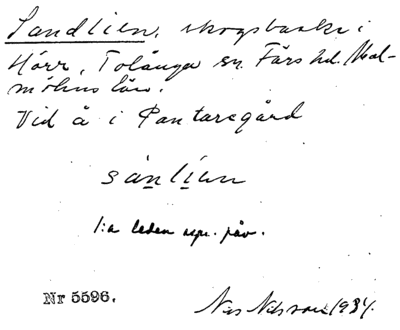 Sandlien, skogsbacke i
Hörr, Tolånga sn. Färs hd. Mal-
möhus län.
Vid å i Pantaregård
sánlíen
1:a leden uspr. jäv.
Nr 5596.
Nils Nilsson 1934.